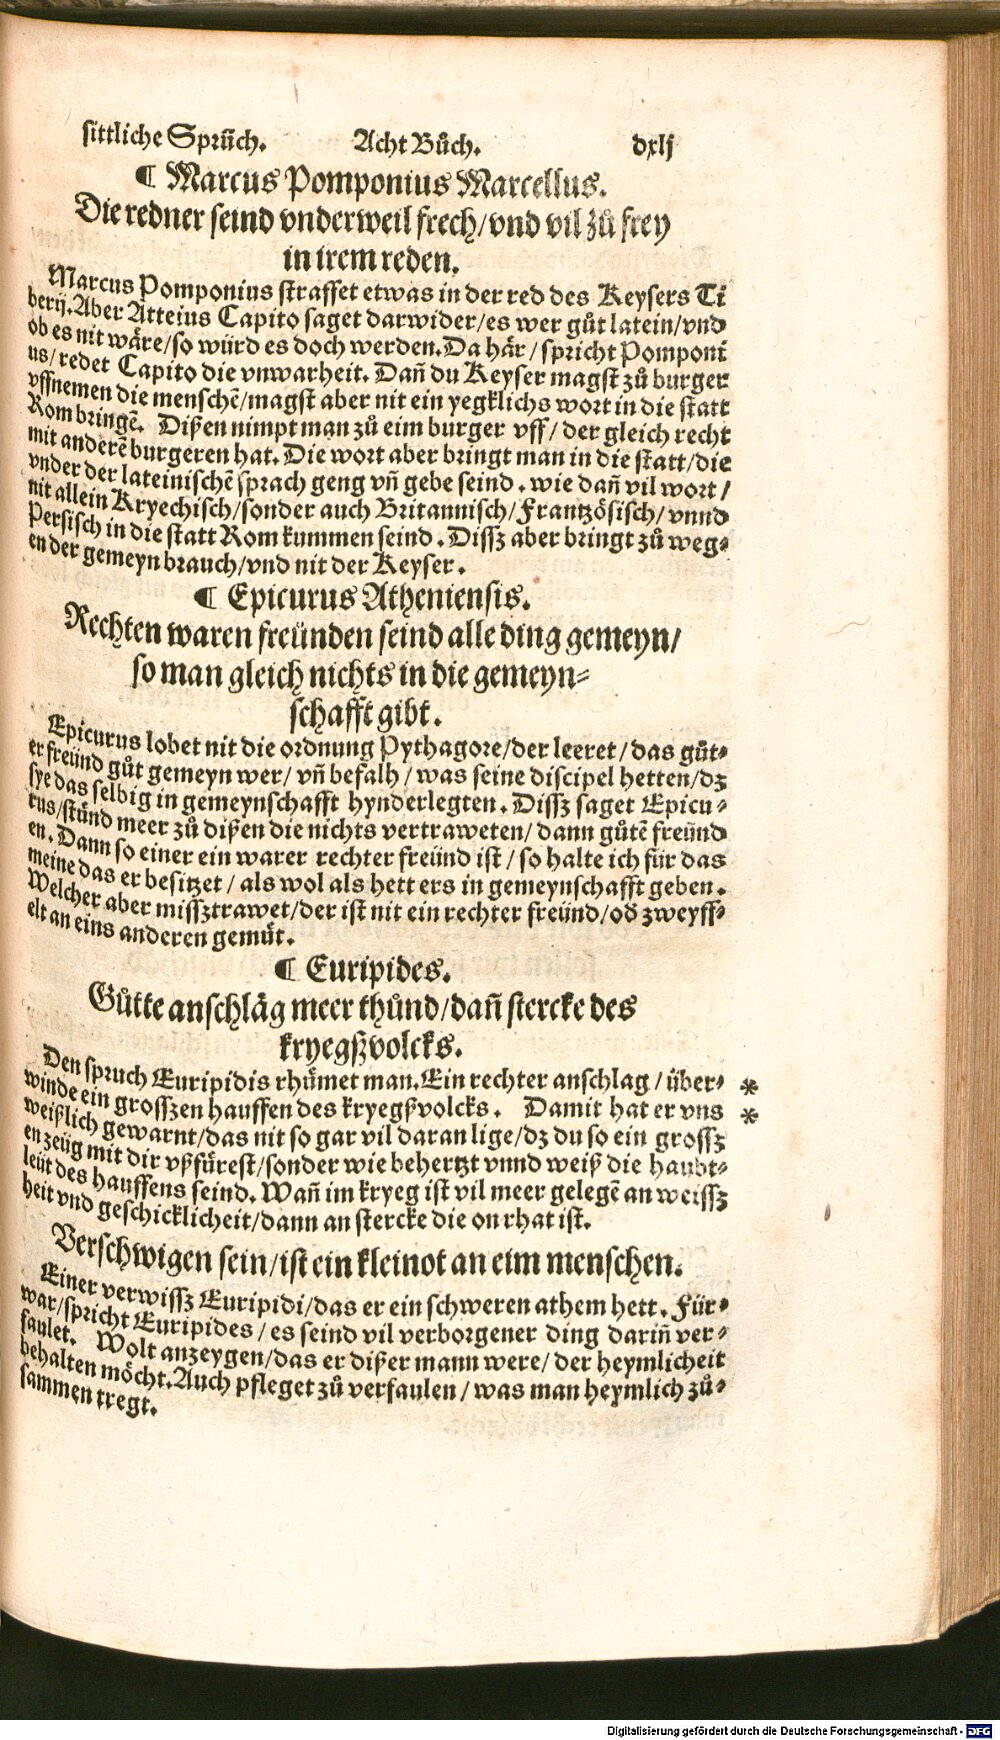 sittliche Sprüch. Acht Bůch. dxlj
¶ Marcus Pomponius Marcellus.
Die redner seind vnderweil frech/vnd vil zů frey
in irem reden.
Marcus Pomponius straffet etwas in der red des Keysers Ti
berij. Aber Atteius Capito saget darwider/es wer gůt latein/vnd
ob es nit wäre/so würd es doch werden. Da här/spricht Pomponi
us/redet Capito die vnwarheit. Dañ du Keyser magst zů burger
vffnemen die menschẽ/magst aber nit ein yegklichs wort in die statt
Rom bringẽ. Dißen nimpt man zů eim burger vff/der gleich recht
mit anderẽ burgeren hat. Die wort aber bringt man in die statt/die
vnder der lateinischẽ sprach geng vñ gebe seind. wie dañ vil wort/
nit allein Kryechisch/sonder auch Britannisch/Frantzösisch/vnnd
Persisch in die statt Rom kummen seind. Dissz aber bringt zů weg-
en der gemeyn brauch/vnd nit der Keyser.
¶ Epicurus Atheniensis.
Rechten waren freünden seind alle ding gemeyn/
so man gleich nichts in die gemeyn-
schafft gibt.
Epicurus lobet nit die ordnung Pythagore/der leeret/das gůt-
er freünd gůt gemeyn wer/vñ befalh/was seine discipel hetten/dz
sye das selbig in gemeynschafft hynderlegten. Dissz saget Epicu-
rus/stůnd meer zů dißen die nichts vertraweten/dann gůtẽ freünd
en. Dann so einer ein warer rechter freünd ist/so halte ich für das
meine das er besitzet/als wol als hett ers in gemeynschafft geben.
Welcher aber missztrawet/der ist nit ein rechter freünd/od zweyff-
elt an eins anderen gemüt.
¶ Euripides.
Gůtte anschläg meer thůnd/dañ stercke des
kryegßvolcks.
Den spruch Euripidis rhümet man. Ein rechter anschlag/über- *
winde ein grosszen hauffen des kryegßvolcks. Damit hat er vns *
weißlich gewarnt/das nit so gar vil daran lige/dz du so ein grossz
en zeüg mit dir vßfürest/sonder wie behertzt vnnd weiß die haubt-
leüt des hauffens seind. Wañ im kryeg ist vil meer gelegẽ an weissz
heit vnd geschicklicheit/dann an stercke die on rhat ist.
Verschwigen sein/ist ein kleinot an eim menschen.
Einer verwissz Euripidi/das er ein schweren athem hett. Für-
war/spricht Euripides/es seind vil verborgener ding dariñ ver-
faulet. Wolt anzeygen/das er dißer mann were/der heymlicheit
behalten möcht. Auch pfleget zů verfaulen/was man heymlich zů-
sammen tregt.
Digitalisierung gefördert durch die Deutsche Forschungsgemeinschaft - DFG